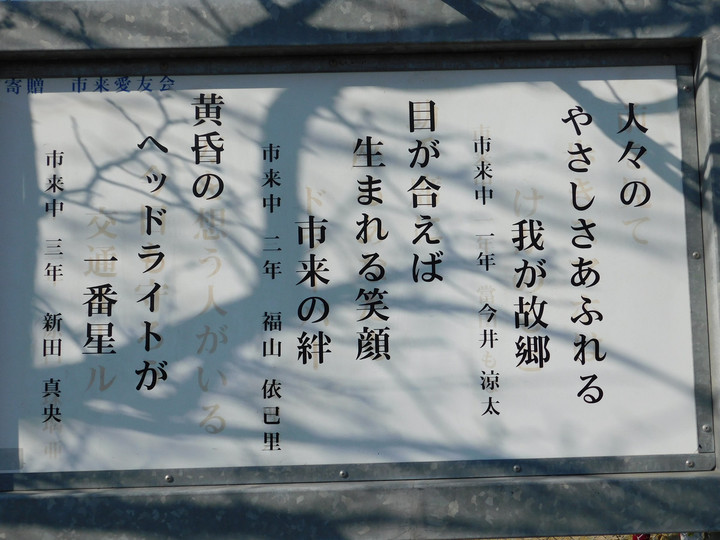 寄贈 市来愛友会
人々の
やさしさあふれる
我が故郷
市来中 一年 今井 涼太
目が合えば
生まれる笑顔
市来の絆
市来中 二年 福山 依己里
黄昏の
ヘッドライトが
一番星
市来中 三年 新田 真央